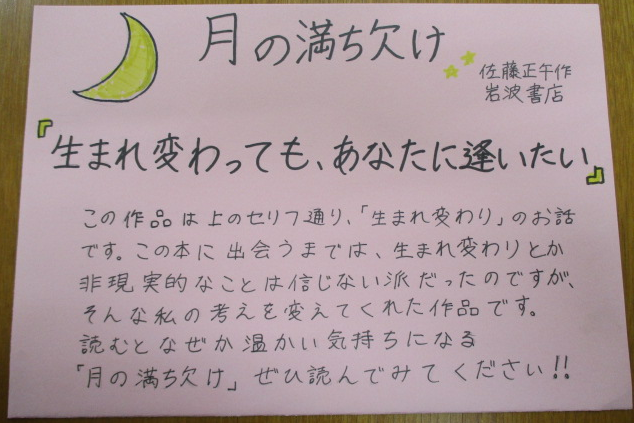 月の満ち欠け
佐藤正午作
岩波書店
『生まれ変わっても、あなたに逢いたい』
この作品は上のセリフ通り、「生まれ変わり」のお話
です。この本に出会うまでは、生まれ変わりとか
非現実的なことは信じない派だったのですが、
そんな私の考えを変えてくれた作品です。
読むとなぜか温かい気持ちになる
「月の満ち欠け」ぜひ読んでみてください!!